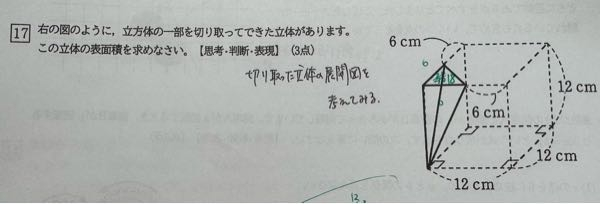 17 右の図のように，立方体の一部を切り取ってできた立体があります。
この立体の表面積を求めなさい。【思考・判断・表現】（3点）
切り取った立体の展開図を
考えてみる。
6 cm
6
18
6 cm
12 cm
12 cm
12 cm